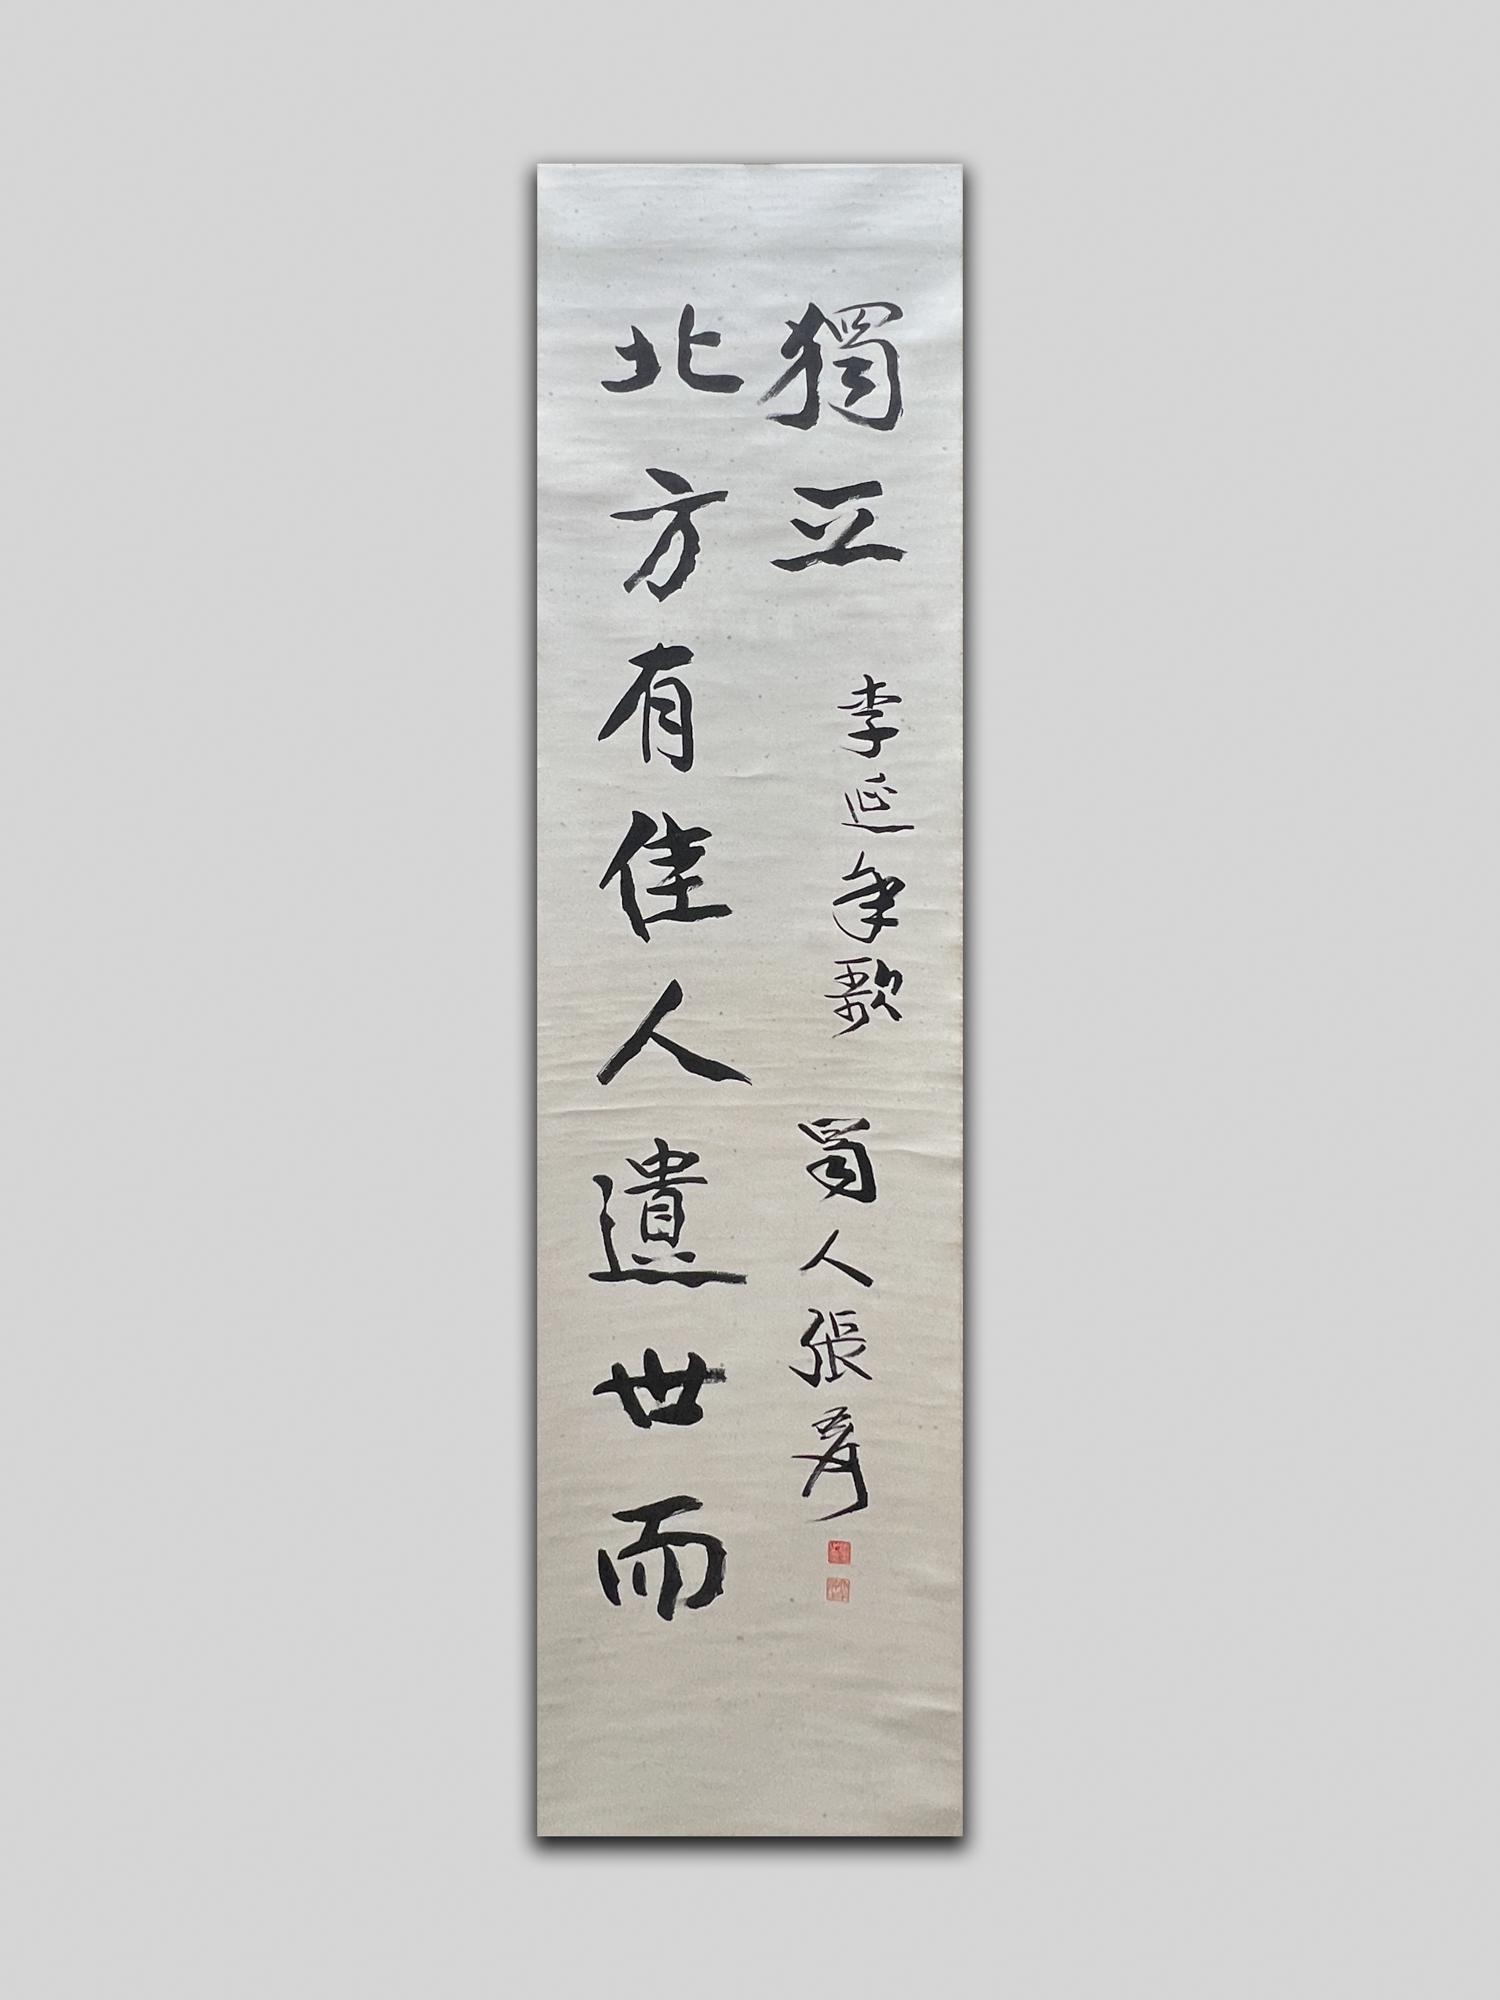 北方有佳人遺世而
獨立
李延年歌
蜀人張爰